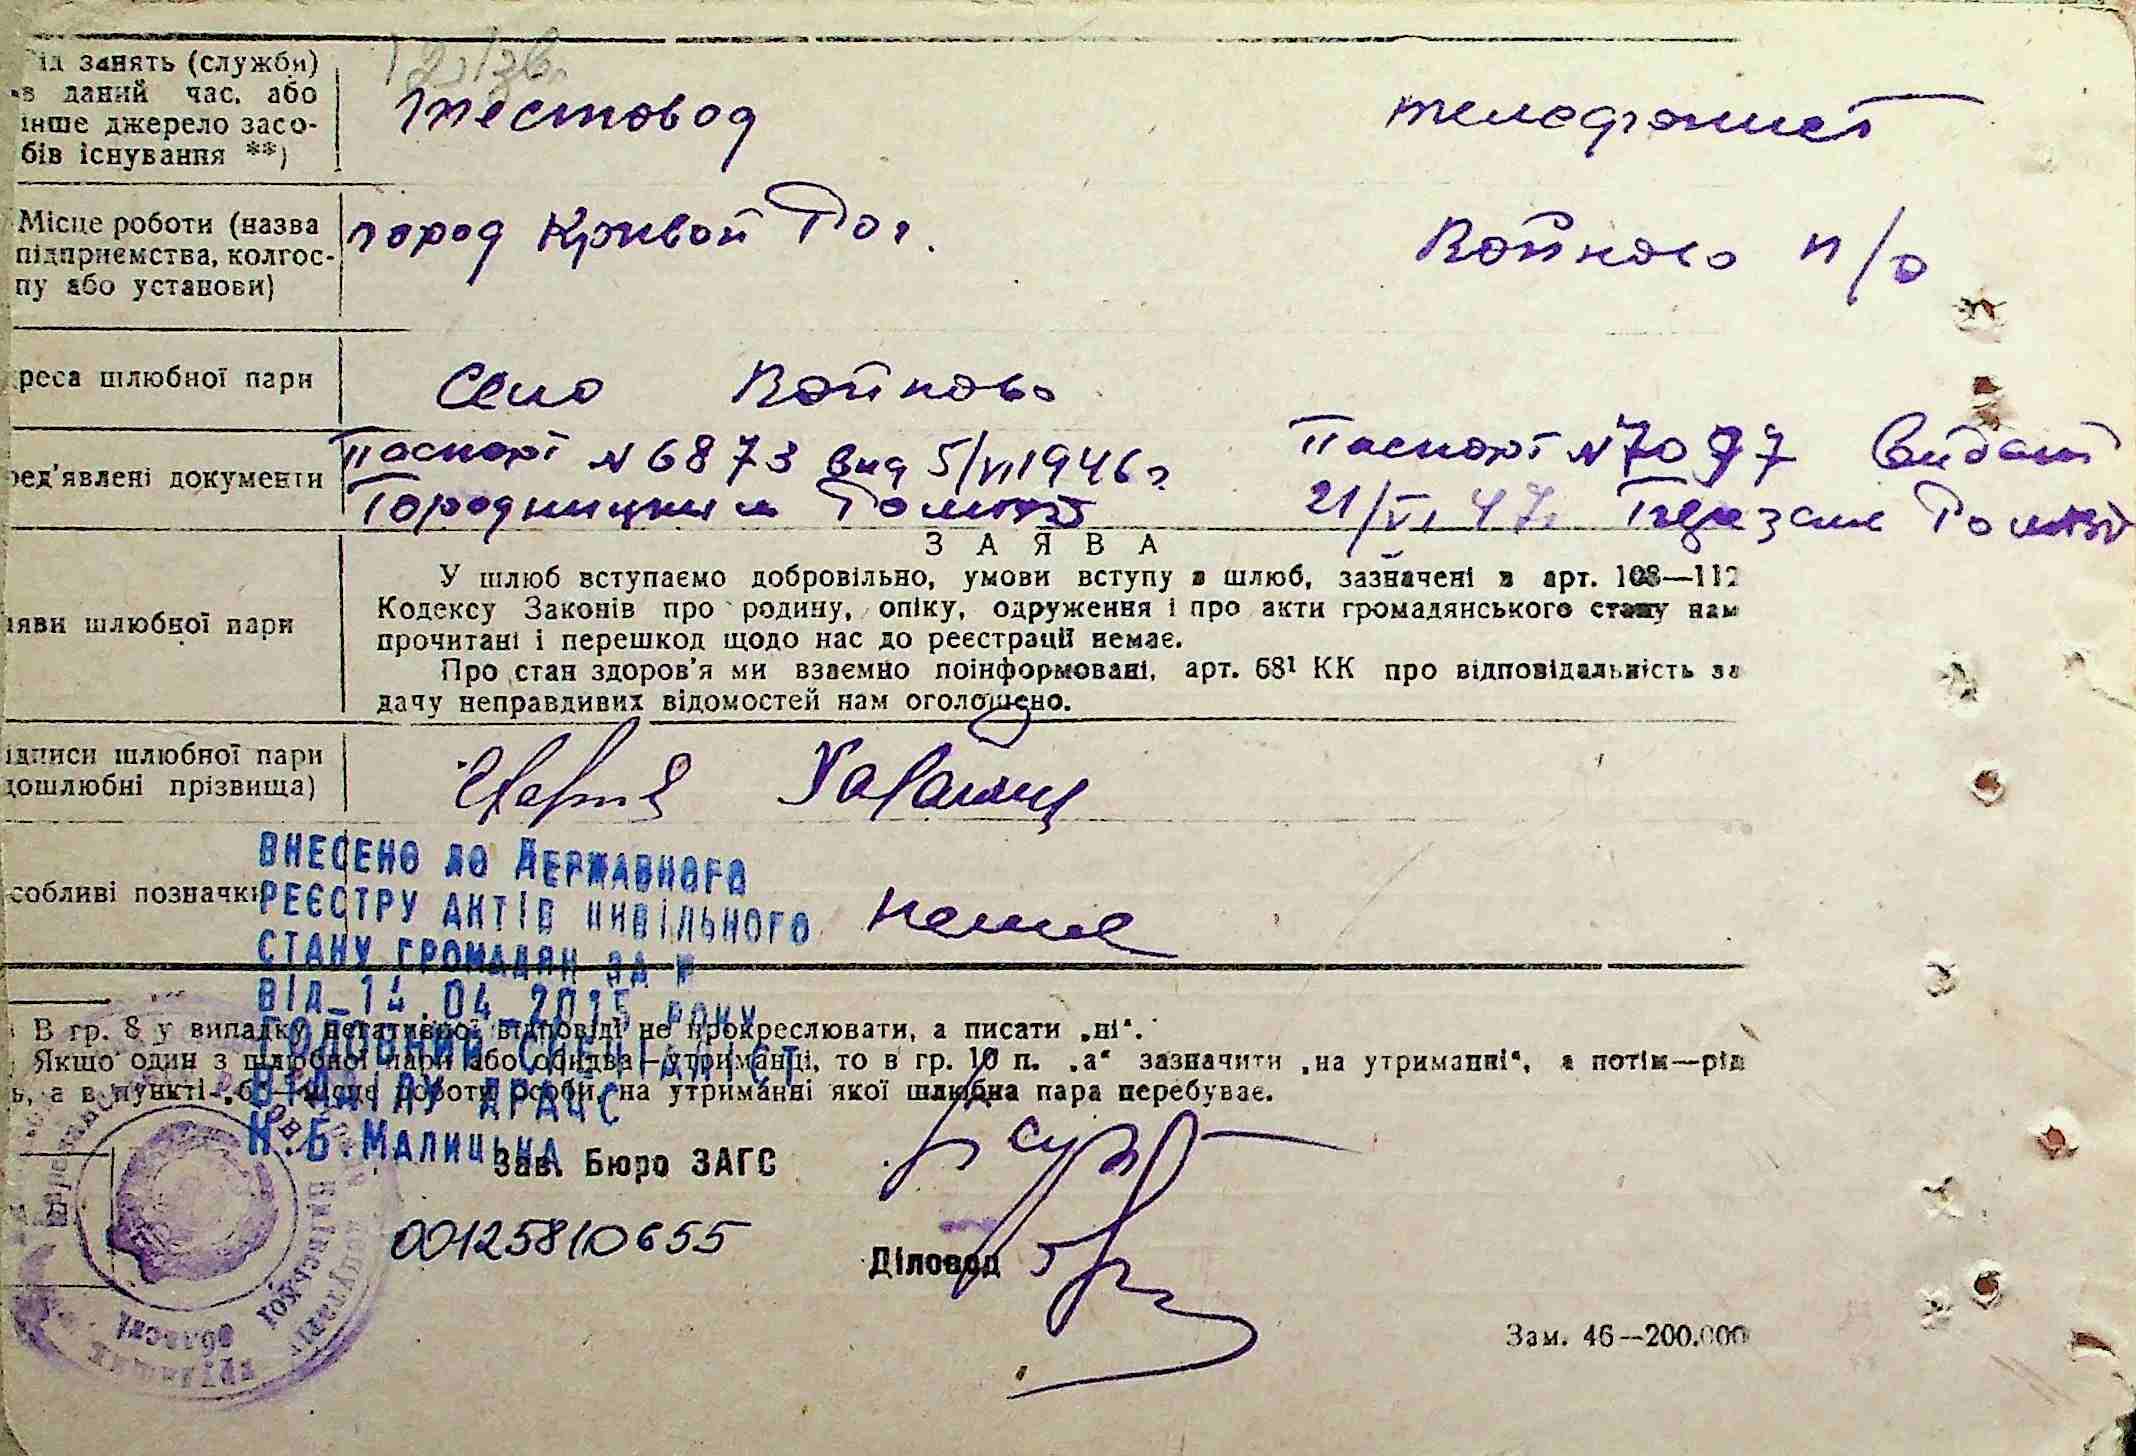 ід занять (служби)
в даний час, або
інше джерело засо-
бів існування **)
тестовод
телефонист
Місце роботи (назва
підприємства, колгос-
пу або установи)
город Кривой Рог.
Войково п/о
реса шлюбної пари
Село Войково
ред'явлені документи
Паспорт №6873 вид 5/VI 1946г
Городницким
Паспорт №7097 Видан
21/VI 47
ЗАЯВА
яви шлюбної пари
У шлюб вступаємо добровільно, умови вступу в шлюб, зазначені в арт. 108—112
Кодексу Законів про родину, опіку, одруження і про акти громадянського стану нам
прочитані і перешкод щодо нас до реєстрації немає.
Про стан здоров'я ми взаємно поінформовані, арт. 68¹ КК про відповідальність за
дачу неправдивих відомостей нам оголошено.
ідписи шлюбної пари
дошлюбні прізвища)
собливі позначки
ВНЕСЕНО ДО ДЕРЖАВНОГО
РЕЄСТРУ АКТІВ ЦИВІЛЬНОГО
СТАНУ ГРОМАДЯН ЗА №
ВІД_14.04_2015 РОКУ
ГОЛОВНИЙ СПЕЦІАЛІСТ
ВІДДІЛУ ДРАЦС
Н.Б.МАЛИЦЬКА
В гр. 8 у випадку негативної відповіді не прокреслювати, а писати „ні".
Якщо один з шлюбної пари або обидва—утриманці, то в гр. 10 п. „а" зазначити „на утриманні", а потім—рід
ь, а в пункті „б"—місце роботи особи, на утриманні якої шлюбна пара перебуває.
Зав. Бюро ЗАГС
00125810655
Діловод
Зам. 46—200.000